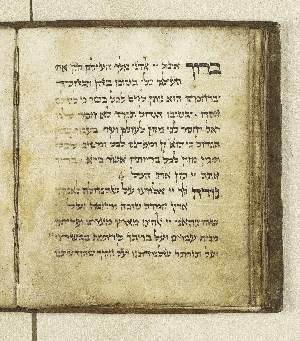 ברוך אתה יי אלהינו מלך העולם הזן את
העולם כלו בטובו בחן בחסד
וברחמים הוא נותן לחם לכל בשר כי לעולם
חסדו ובטובו הגדול תמיד לא חסר לנו
ואל יחסר לנו מזון לעולם ועד בעבור שמו
הגדול כי הוא זן ומפרנס לכל ומטיב לכל
ומכין מזון לכל בריותיו אשר ברא ברוך
אתה יי הזן את הכל
נודה לך יי אלהינו על שהנחלת לאבותינו
ארץ חמדה טובה ורחבה ועל
שהוצאתנו יי אלהינו מארץ מצרים ופדיתנו
מבית עבדים ועל בריתך שחתמת בבשרינו
ועל תורתך שלמדתנו ועל חקיך שהודעתנו